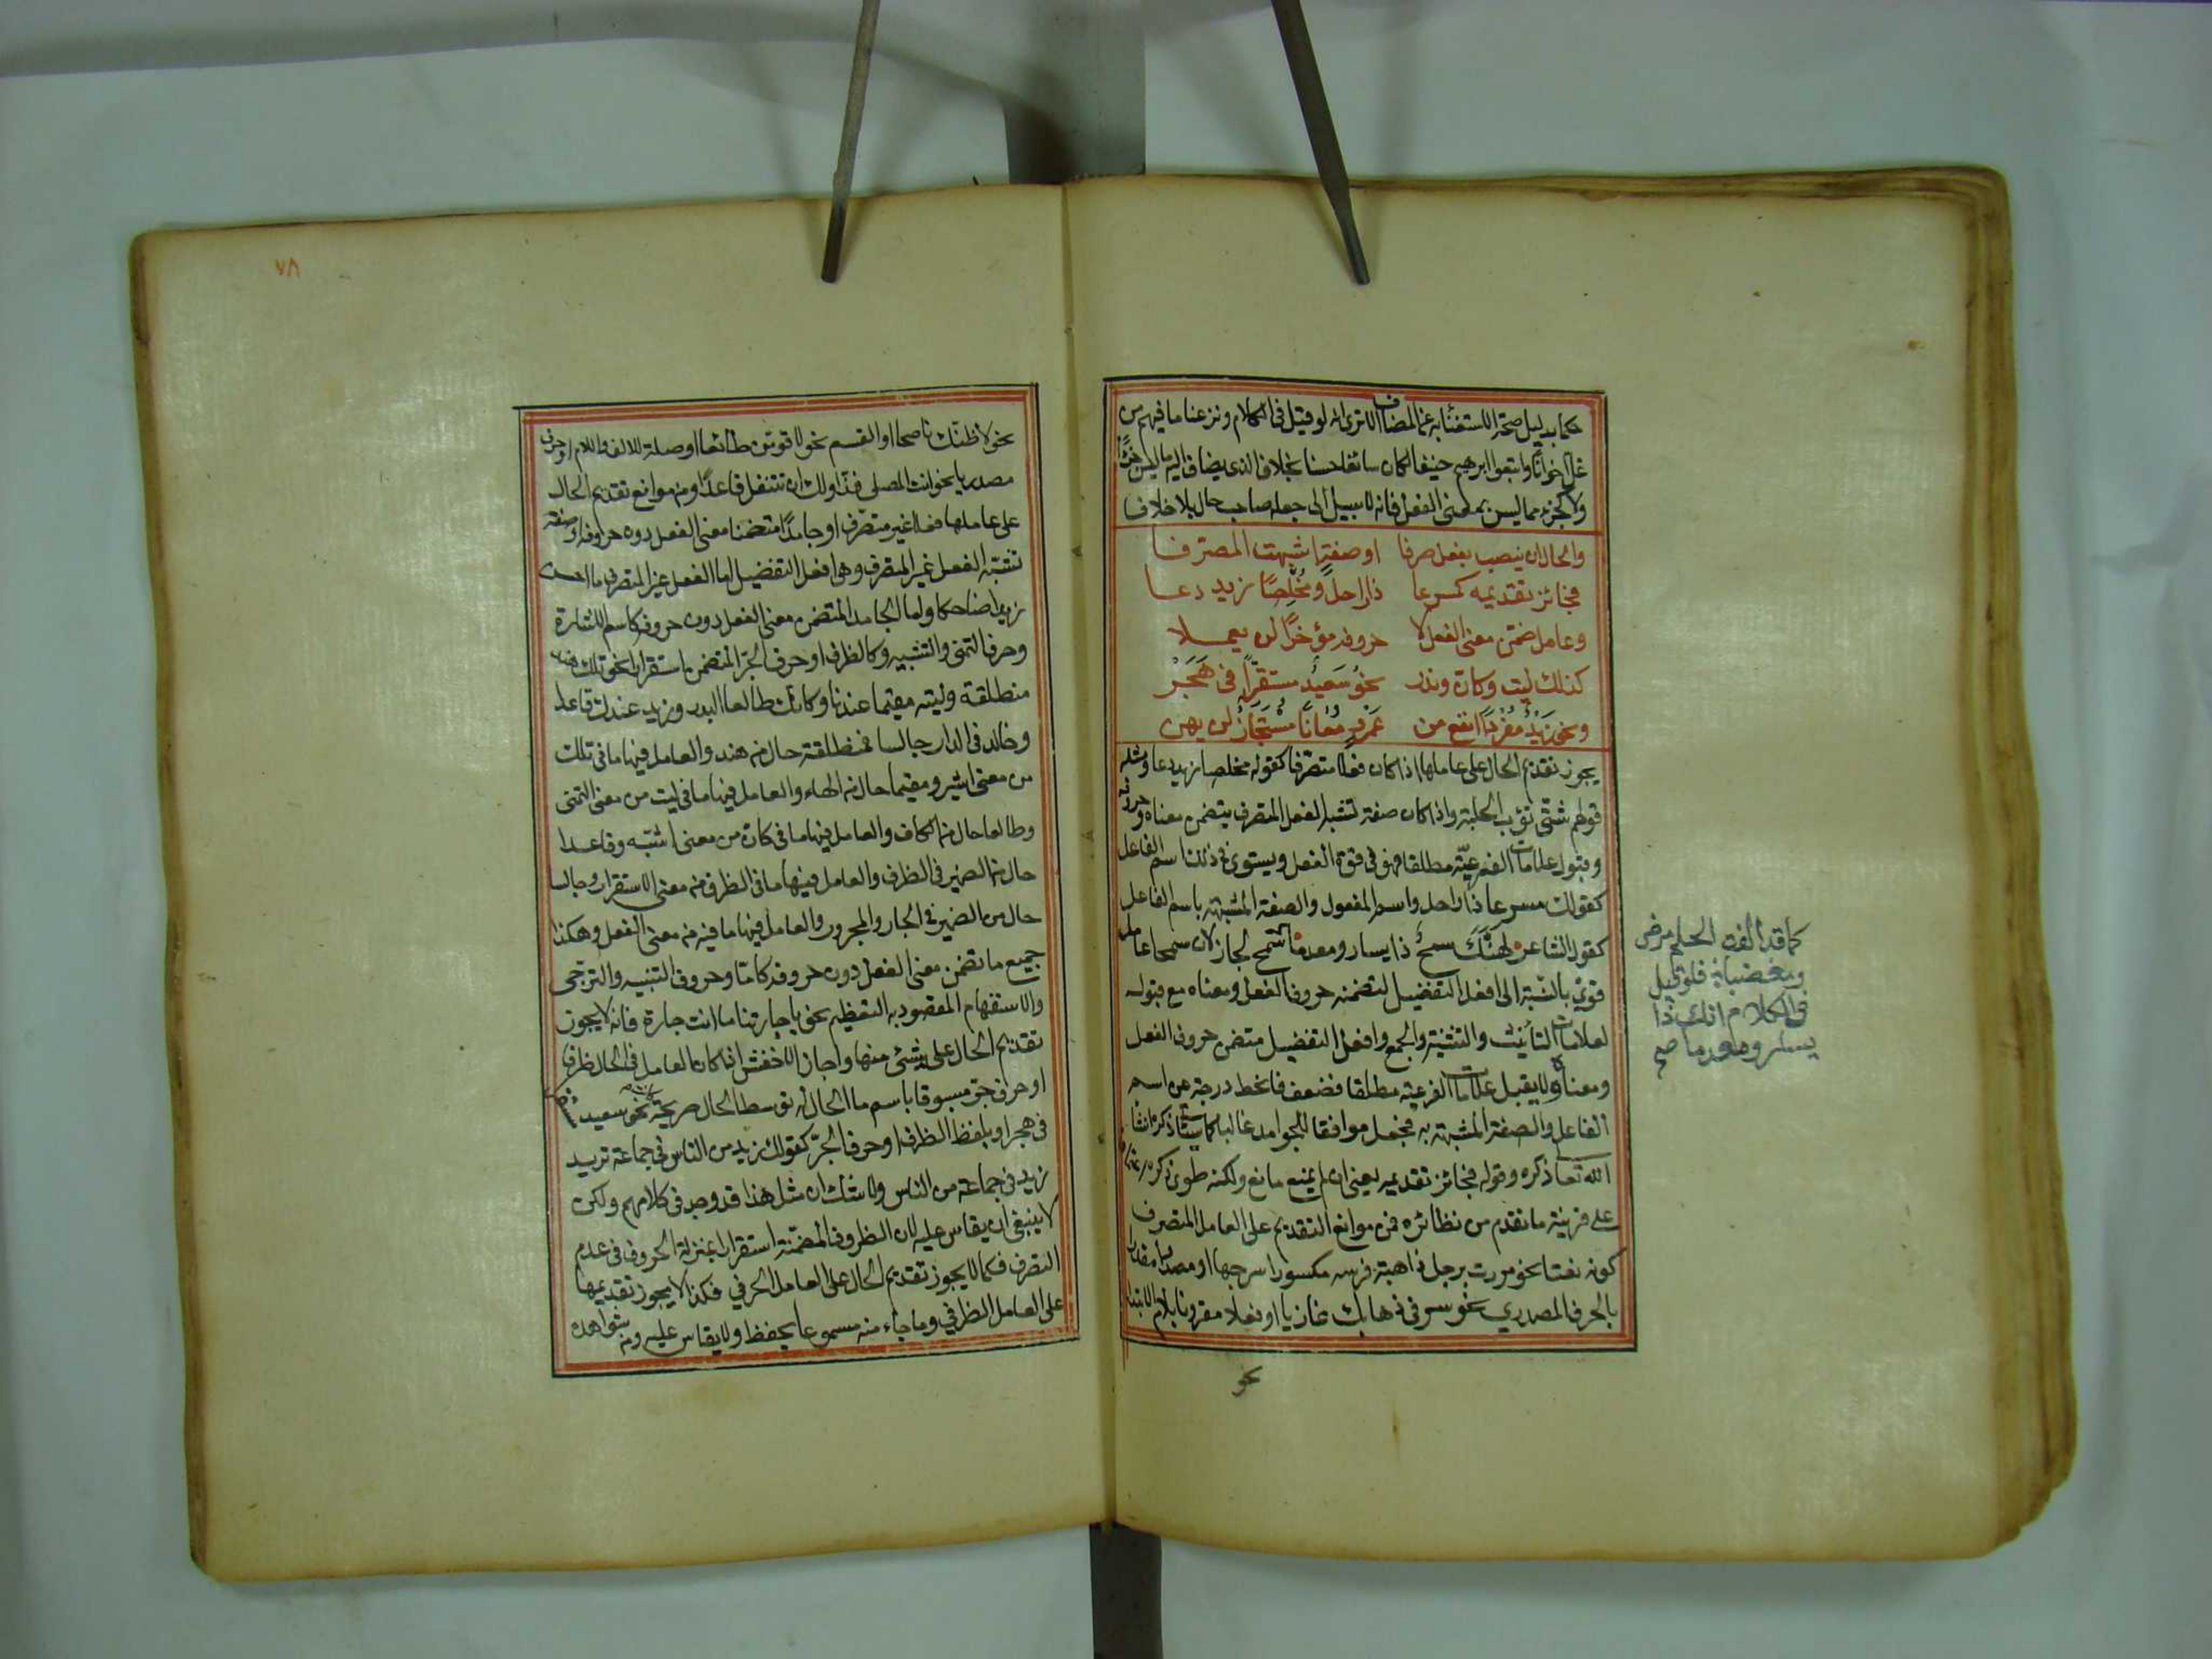 حكما بدليل صحة الاستغناء به عن المضاف الا ترى انه لو قيل في الكلام ونزعنا ما فيهم من
غل اخوانا واتبعوا ابرهيم حنيفا لكان سائغا حسنا بخلاف الذي يضاف اليه ما ليس جزءًا
ولا كجزء مما ليس بمعنى الفعل فانه لا سبيل الى جعله صاحب حال بلا خلاف
والحال ان ينصب بفعل صرفا او صفة اشبهت المصرفا
فجائز تقديمه كمسرعا ذا راحل ومُخلِصًا زيد دعا
وعامل ضمّن معنى الفعل لا حروفه مؤخرًا لن يعملا
كذلك ليت وكان وندر نحو سَعيدٌ مستقرًّا في هَجَرْ
ونحو زَيْدٌ مُفْرَدًا انفع من عَمْرٍو مُعَانًا مُسْتَجَازٌ لن يهن
يجوز تقديم الحال على عاملها اذا كان فعلا متصرّفا كقوله مخلصا زيد دعا ومثله
قولهم شتّى تؤب الحلبة واذا كان صفة تشبه الفعل المتصرف بتضمن معناه وحروفه
وقبول علامات الفرعيّة مطلقا فهو في قوة الفعل ويستوي في ذلك اسم الفاعل
كقولك مسرعا ذا راحل واسم المفعول والصفة المشبهة باسم الفاعل
كقول الشاعر لهنّك سمحٌ ذا يسار ومعدما سمح لجاز لان سمحا عامل
قويّ بالنسبة الى افعل التفضيل لتضمنه حروف الفعل ومعناه مع قبوله
لعلامات التأنيث والتثنية والجمع وافعل التفضيل متضمن حروف الفعل
ومعناه ولا يقبل علامات الفرعية مطلقا فضعف فانحط درجة عن اسم
الفاعل والصفة المشبهة به فجعل موافقا للجوامد غالبا كما ستأتي ذكره انشا
الله تعا ذكره وقوله فجائز تقديمه يعني ان لم يمنع مانع ولكنه طوى ذكره
على قرينة ما تقدم من نظائره فمن موانع التقديم على العامل المتصرف
كونه نعتا نحو مررت برجل ذاهبة فرسه مكسورا سرجها او مصدرا مقدرا
بالحرف المصدري نحو سرني ذهابك غازيا او فعلا مقرونا بلام الابتداء
نحو
كما قد
فلو قيل
في الكلام انك ذا
يسار ومعدما صح
٧٨
نحو لاظنّك ناصحا او القسم نحو لاقومَنّ طائعا او صلة للالف واللام او حرف
مصدريا نحو انت المصلي فذّا ولك ان تتنفل قاعدًا ومن موانع تقديم الحال
على عاملها فعلا غير متصرّف او جامدًا متضمنا معنى الفعل دون حروفه او صفة
تشبه الفعل غير المتصرف وهي افعل التفضيل اما الفعل غير المتصرف ما احسن
زيدا ضاحكا واما الجامد المتضمن معنى الفعل دون حروفه كاسم الاشارة
وحرف التمني والتشبيه وكالظرف او حرف الجرّ المتضمن استقرارا نحو تلك هند
منطلقة وليته مقيما عندنا وكانك طالعا البدر وزيد عندك قاعدا
وخالد في الدار جالسا فمنطلقة حال من هند والعامل فيها ما في تلك
من معنى اشير ومقيما حال من الهاء والعامل فيها ما في ليت من معنى التمني
وطالعا حال من الكاف والعامل فيها ما في كان من معنى اشبّه وقاعدا
حال من الضمير في الظرف والعامل فيها ما في الظرف من معنى الاستقرار وجالسا
حال من الضمير في الجار والمجرور والعامل فيها ما فيه من معنى الفعل وهكذا
جميع ما تضمن معنى الفعل دون حروفه كامّا وحروف التنبيه والترجي
والاستفهام المقصود به التعظيم نحو يا جارتنا ما انت جارة فانه لا يجوز
تقديم الحال على شئ منها واجاز الاخفش اذا كان العامل في الحال ظرفا
او حرف جرّ مسبوقا باسم ما الحال له توسط الحال صريحة نحو سعيد مستقرا
في هجر او بلفظ الظرف او حرف الجرّ كقولك زيد من الناس في جماعة تريد
زيد في جماعة من الناس ولا شك ان مثل هذا قد وجد في كلامهم ولكن
لا ينبغي ان يقاس عليه لان الظروف المضمّنة استقرارا بمنزلة الحروف في عدم
التصرف فكما لا يجوز تقديم الحال على العامل الحرفي فكذا لا يجوز تقديمها
على العامل الظرفي وما جاء منه مسموعا يحفظ ولا يقاس عليه ومن شواهده